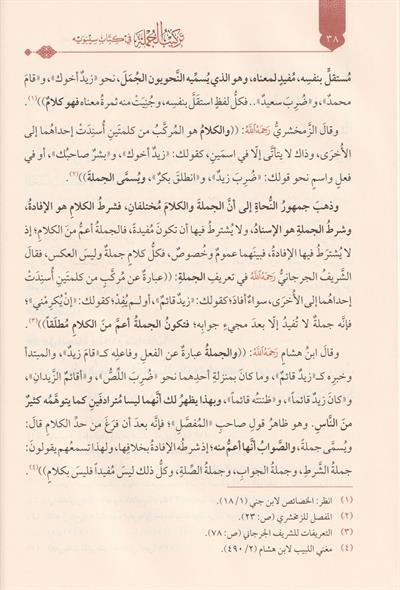 ٣٨
تركيب الجملة في كتاب سيبويه
مُستقلٍّ بنفسِه، مُفيدٍ لمعناه، وهو الذي يُسمِّيه النَّحويون الجُمَلَ، نحو «زيدٌ أخوك»، و«قامَ
محمدٌ»، و«ضُرِبَ سعيدٌ».. فكلُّ لفظٍ استقلَّ بنفسِه، وجُنِيَتْ منه ثمرةُ معناه فهو كلامٌ))(١).
وقالَ الزَّمخشريُّ رَحِمَهُ اللَّهُ: ((والكلامُ هو المُركَّبُ من كلمتَينِ أُسنِدَتْ إحداهُما إلى
الأُخرَى، وذاك لا يتأتَّى إلَّا في اسمَينِ، كقولك: «زيدٌ أخوك»، و«بِشرٌ صاحبُك»، أو في
فعلٍ واسمٍ نحو قولك: «ضُرِبَ زيدٌ»، و«انطلَقَ بكرٌ»، ويُسمَّى الجملةَ))(٢).
وذهبَ جمهورُ النُّحاةِ إلى أنَّ الجملةَ والكلامَ مُختلفانِ، فشرطُ الكلامِ هو الإفادةُ،
وشرطُ الجملةِ هو الإسنادُ، ولا يُشترطُ فيها أن تكونَ مُفيدةً، فالجملةُ أعمُّ منَ الكلامِ؛ إذ
لا يُشترَطُ فيها الإفادةُ، فبينَهما عمومٌ وخُصوصٌ، فكلُّ كلامٍ جملةٌ وليسَ العكس، فقالَ
الشَّريفُ الجرجانيُّ رَحِمَهُ اللَّهُ في تعريفِ الجملةِ: ((عبارةٌ عن مُركَّبٍ من كلمتَينِ أُسنِدَتْ
إحداهُما إلى الأُخرَى، سواءٌ أفادَ؛ كقولك: «زيدٌ قائمٌ»، أو لـم يُفِدْ؛ كقولك: «إنْ يُكرِمْني»؛
فإنَّه جملةٌ لا تُفيدُ إلَّا بعدَ مجيءِ جوابِه؛ فتكونُ الجملةُ أعمَّ منَ الكلامِ مُطلَقاً))(٣)
وقالَ ابنُ هشامٍ رَحِمَهُ اللَّهُ: ((والجملةُ عبارةٌ عنِ الفعلِ وفاعلِه كـ«قامَ زيدٌ»، والمبتدأ
وخبرِه كـ«زيدٌ قائمٌ»، وما كانَ بمنزلةِ أحدِهما نحو «ضُرِبَ اللِّصُّ»، و«أقائمٌ الزَّيدانِ»،
و«كانَ زيدٌ قائماً»، و«ظننتُه قائماً»، وبهذا يظهرُ لك أنَّهما ليسا مُترادفَينِ كما يتوهَّمُه كثيرٌ
منَ النَّاسِ. وهو ظاهرُ قولِ صاحبِ «المُفصَّلِ»؛ فإنَّه بعدَ أن فرَغَ من حدِّ الكلامِ قالَ:
ويُسمَّى جملةً، والصَّوابُ أنَّها أعمُّ منه؛ إذ شرطُه الإفادةُ بخلافِها، ولهذا تسمعُهم يقولونَ:
جملةُ الشَّرطِ، وجملةُ الجوابِ، وجملةُ الصِّلةِ، وكلُّ ذلك ليسَ مُفيداً فليسَ بكلامٍ))(٤)
(١) انظر: الخصائص لابن جني (١/ ١٨).
(٢) المفصل للزمخشري (ص: ٢٣).
(٣) التعريفات للشريف الجرجاني (ص: ٧٨).
(٤) مغني اللبيب لابن هشام (٢/ ٤٩٠).